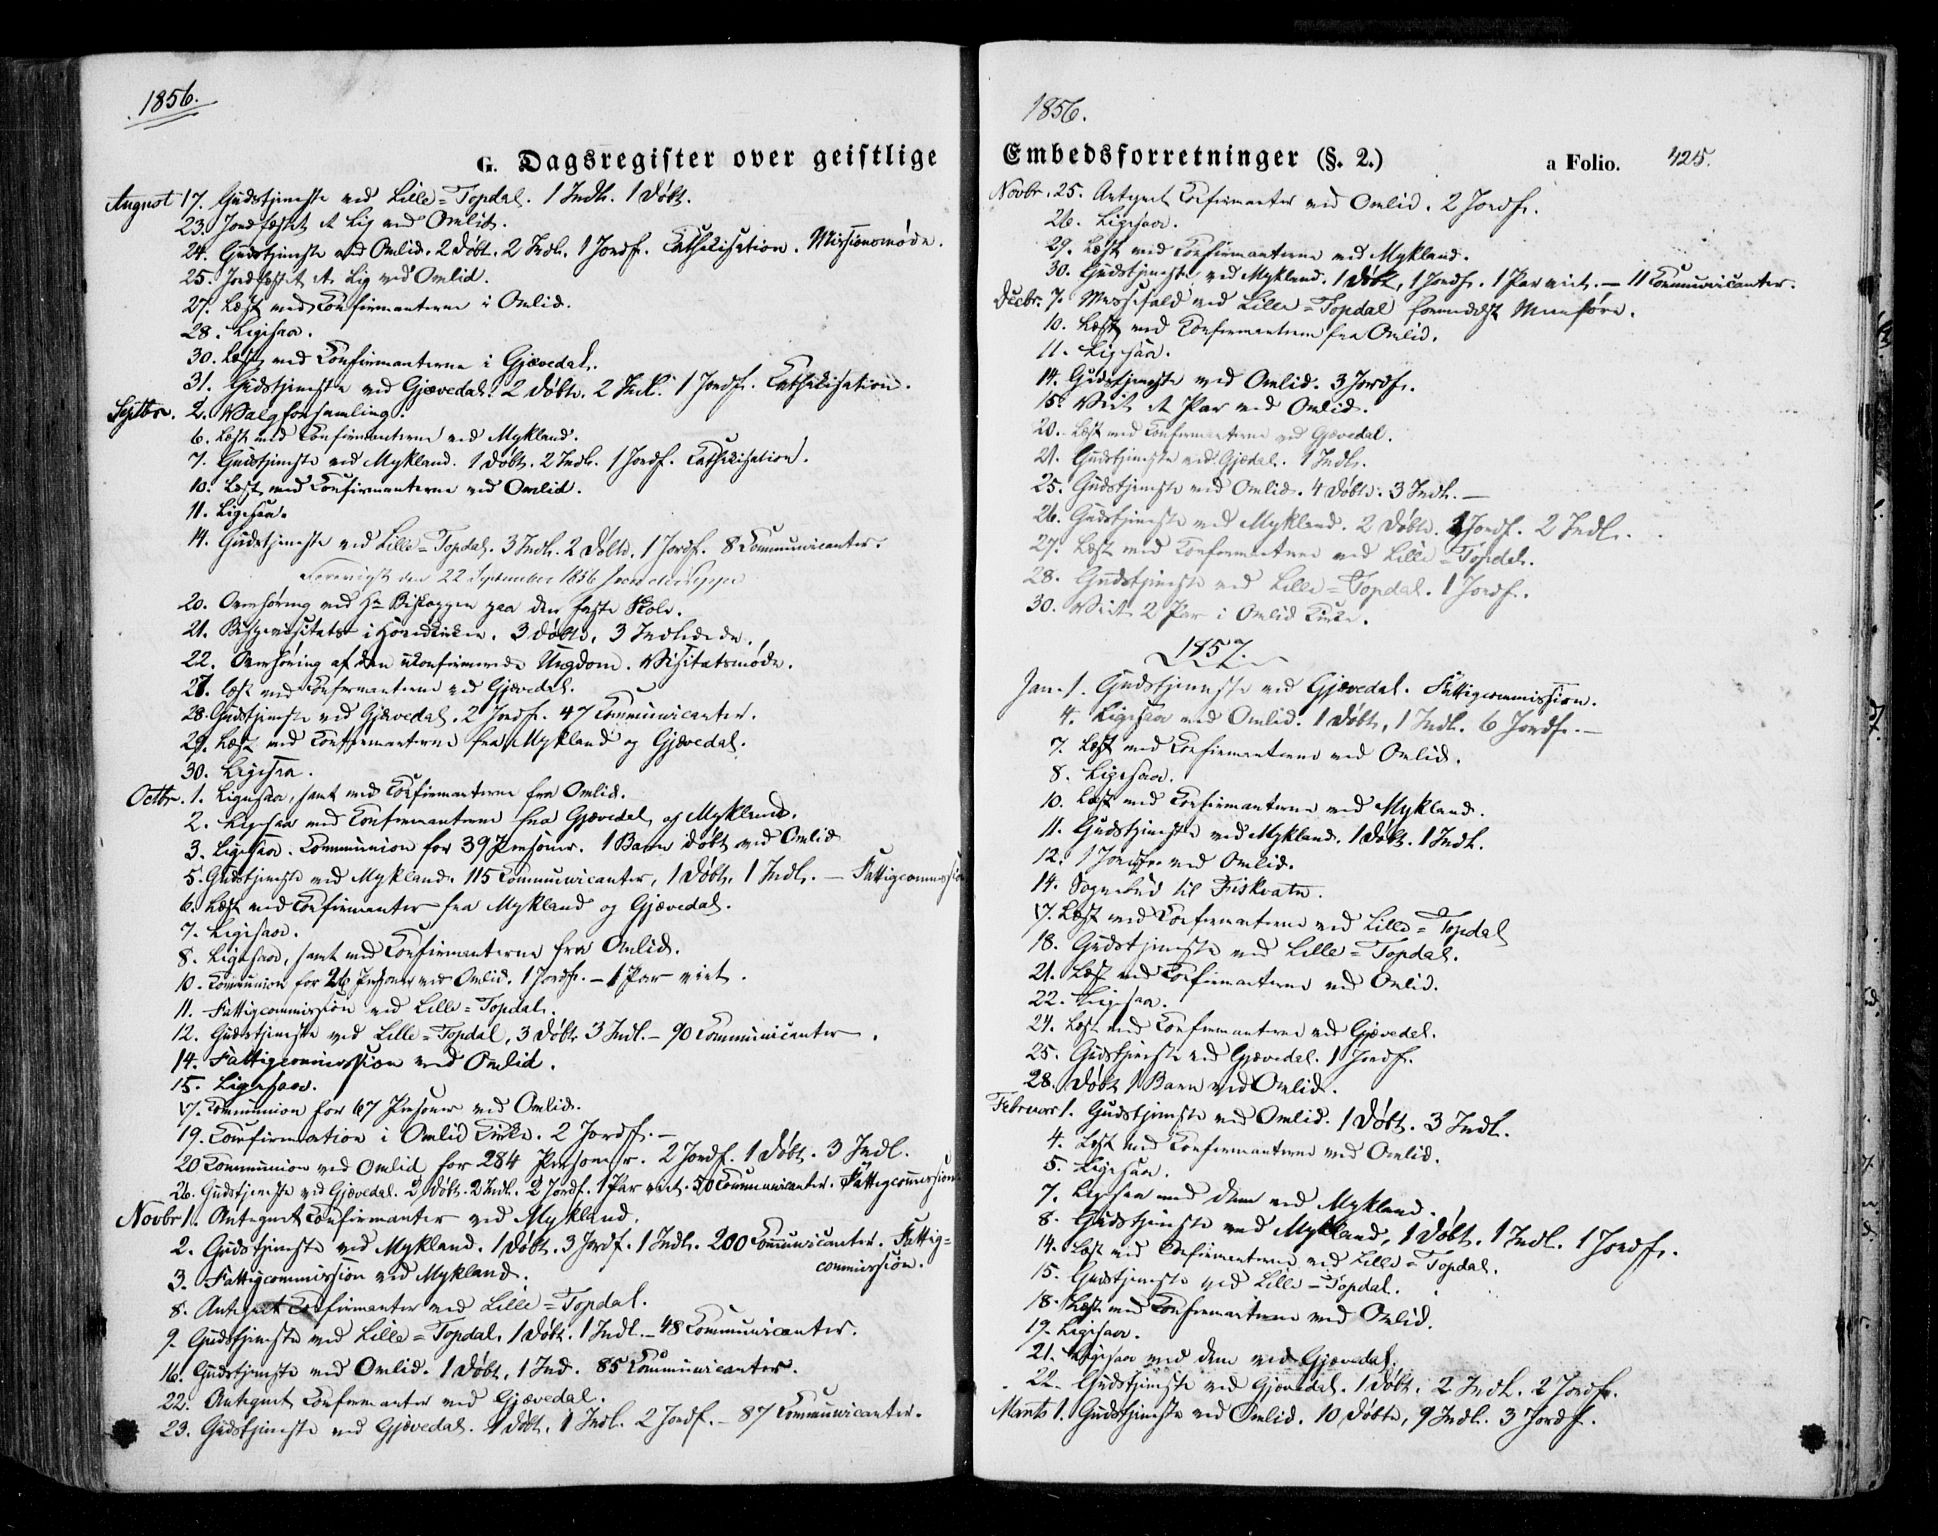 1856.
G. Dagsregister over geistlige
August 17. Gudstjeneste ved Lille-Topdal. 1 Indl. 1 Døbt.
23. Jordfæstet et Lig ved Omlid.
24. Gudstjeneste ved Omlid. 2 Døbt. 2 Indl. 1 Jordf. Cathekisation. Missionsmøde.
25. Jordfæstet et Lig ved Omlid.
27. Læst med Confirmanterne i Omlid.
28. Ligesaa.
30. Læst med Confirmanterne i Gjævedal.
31. Gudstjeneste ved Gjævedal. 2 Døbte. 2 Indl. 1 Jordf. Cathekisation.
Septbr. 2. Valgforsamling.
6. Læst med Confirmanterne ved Mykland.
7. Gudstjeneste ved Mykland. 1 Døbt. 2 Indl. 1 Jordf. Cathekisation.
10. Læst med Confirmanterne ved Omlid.
11. Ligesaa.
14. Gudstjeneste ved Lille-Topdal. 3 Indl. 2 Døbte. 1 Jordf. 8 Communicanter.
Foreviist den 22 September 1856
20. Overhøring ved Hr Biskoppen paa den faste Skole.
21. Bispevisitats i Hovedkirken. 3 Døbte. 3 Indledede.
22. Overhøring af den ukonfirmerede Ungdom. Visitatsmøde.
27. Læst med Confirmanterne ved Gjævedal.
28. Gudstjeneste ved Gjævedal. 2 Jordf. 47 Communicanter.
29. Læst med Confirmanterne fra Mykland og Gjævedal.
30. Ligesaa.
Octbr. 1. Ligesaa, samt med Confirmanterne fra Omlid.
2. Ligesaa med Confirmanterne fra Gjævedal og Mykland.
3. Ligesaa. Communion for 39 Personer. 1 Barn døbt ved Omlid
5. Gudstjeneste ved Mykland. 115 Communicanter, 1 Døbt, 1 Indl. — Fattigcommission
6. Læst med Confirmanter fra Mykland og Gjævedal.
7. Ligesaa.
8. Ligesaa, samt med Confirmanterne fra Omlid.
10. Communion for 26 Personer ved Omlid. 1 Jordf. — 1 Par viet.
11. Fattigcommission ved Lille-Topdal.
12. Gudstjeneste ved Lille-Topdal, 3 Døbt. 3 Indl. — 90 Communicanter.
14. Fattigcommission ved Omlid.
15. Ligesaa.
17. Communion for 67 Personer ved Omlid.
19. Confirmation i Omlid Kirke. 2 Jordf. —
20 Communion ved Omlid for 284 Personer. 2 Jordf. 1 Døbt. 3 Indl.
26. Gudstjeneste ved Gjævedal. 2 Døbt. 2 Indl. 2 Jordf. 1 Par viet. 50 Communicanter. Fattigcommission
Novbr 1. Antegnet Confirmanter ved Mykland.
2. Gudstjeneste ved Mykland. 1 Døbt. 3 Jordf. 1 Indl. 200 Communicanter. Fattig=
commission.
3. Fattigcommission ved Mykland.
8. Antegnet Confirmanter ved Lille-Topdal.
9. Gudstjeneste ved Lille-Topdal, 1 Døbt. 1 Indl. — 48 Communicanter.
16. Gudstjeneste ved Omlid. 1 Døbt, 1 Ind. 85 Communicanter.
22. Antegnet Confirmanter ved Gjævedal.
23. Gudstjeneste ved Gjævedal. 1 Døbt. 1 Indl. 2 Jordf. — 87 Communicanter.
1856.
Embedsforretninger (§. 2.) a Folio. 425.
Novbr. 25. Antegnet Confirmanter ved Omlid. 2 Jordf.
26. Ligesaa.
29. Læst med Confirmanterne ved Mykland.
30. Gudstjeneste ved Mykland. 1 Døbt, 1 Jordf. 1 Par viet. — 11 Communicanter.
Decbr. 7. Messefald ved Lille-Topdal formedelst Meenføre.
10. Læst med Confirmanterne fra Omlid.
11. Ligesaa.
14. Gudstjeneste ved Omlid. 3 Jordf.
15. Viet et Par ved Omlid.
20. Læst med Confirmanterne ved Gjævedal.
21. Gudstjeneste ved Gjædal. 1 Indl.
25. Gudstjeneste ved Omlid. 4 Døbte. 3 Indl. —
26. Gudstjeneste ved Mykland. 2 Døbte. 1 Jordf. 2 Indl.
27. Læst med Confirmanterne ved Lille-Topdal.
28. Gudstjeneste ved Lille-Topdal. 1 Jordf.
30. Viet 2 Par i Omlid Kirke.
1857.
Jan. 1. Gudstjeneste ved Gjævedal. Fattigcommission.
4. Ligesaa ved Omlid. 1 Døbt, 1 Indl. 6 Jordf. —
7. Læst med Confirmanterne ved Omlid.
8. Ligesaa.
10. Læst med Confirmanterne ved Mykland.
11. Gudstjeneste ved Mykland. 1 Døbt. 1 Indl.
12. 1 Jordf. ved Omlid.
14. Sognebud til Fiskvatn.
17. Læst med Confirmanterne ved Lille-Topdal
18. Gudstjeneste ved Lille-Topdal.
21. Læst med Confirmanterne ved Omlid.
22. Ligesaa.
24. Læst med Confirmanterne ved Gjævedal.
25. Gudstjeneste ved Gjævedal. 1 Jordf.
28. Døbt 1 Barn ved Omlid.
Februar 1. Gudstjeneste ved Omlid. 1 Døbt. 3 Indl.
4. Læst med Confirmanterne ved Omlid.
5. Ligesaa.
7. Ligesaa med dem ved Mykland.
8. Gudstjeneste ved Mykland, 1 Døbt. 1 Indl. 1 Jordf.
14. Læst med Confirmanterne ved Lille-Topdal.
15. Gudstjeneste ved Lille-Topdal.
18. Læst med Confirmanterne ved Omlid.
19. Ligesaa.
21. Ligesaa med dem ved Gjævedal.
22. Gudstjeneste ved Gjævedal. 1 Døbt. 2 Indl. 2 Jordf.
Marts 1. Gudstjeneste ved Omlid. 10 Døbte, 9 Indl. 3 Jordf.